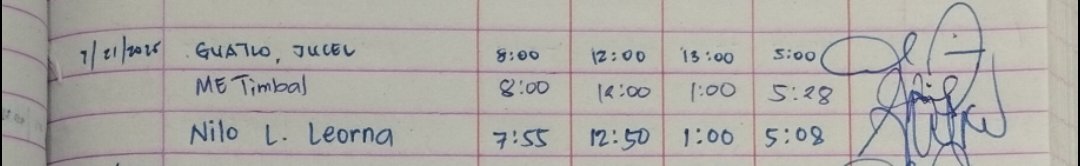 7/21/2025 GUATLO, JUCEL 8:00 12:00 13:00 5:00
ME Timbal 8:00 12:00 1:00 5:28
Nilo L. Leorna 7:55 12:50 1:00 5:08